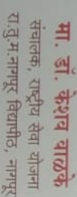 मा. डॉ. केशव वाळके
संचालक, राष्ट्रीय सेवा योजना
रा.तु.म.नागपूर विद्यापीठ, नागपूर